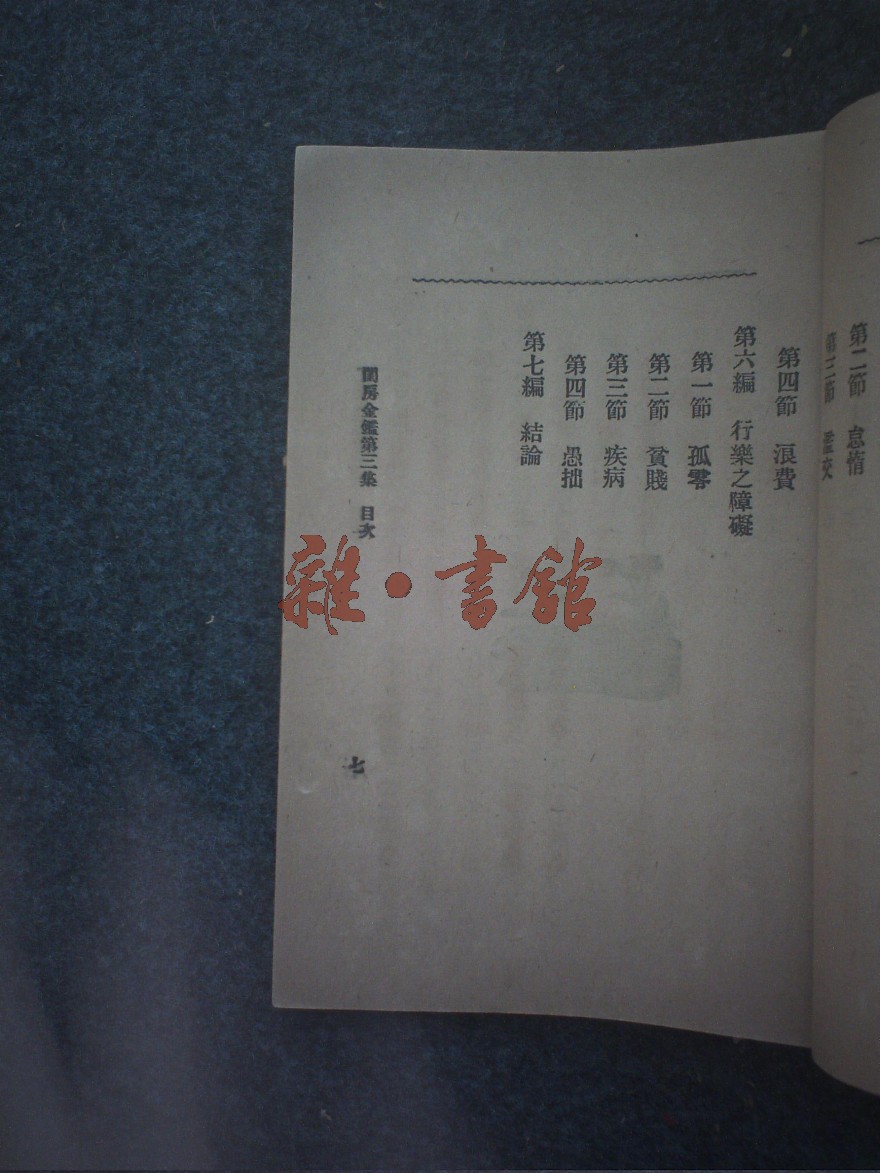 第二節　怠惰
第三節　濫交
第四節　浪費
第六編　行樂之障礙
第一節　孤零
第二節　貧賤
第三節　疾病
第四節　愚拙
第七編　結論
閨房金鑑第三集　目次
七
雜·書館